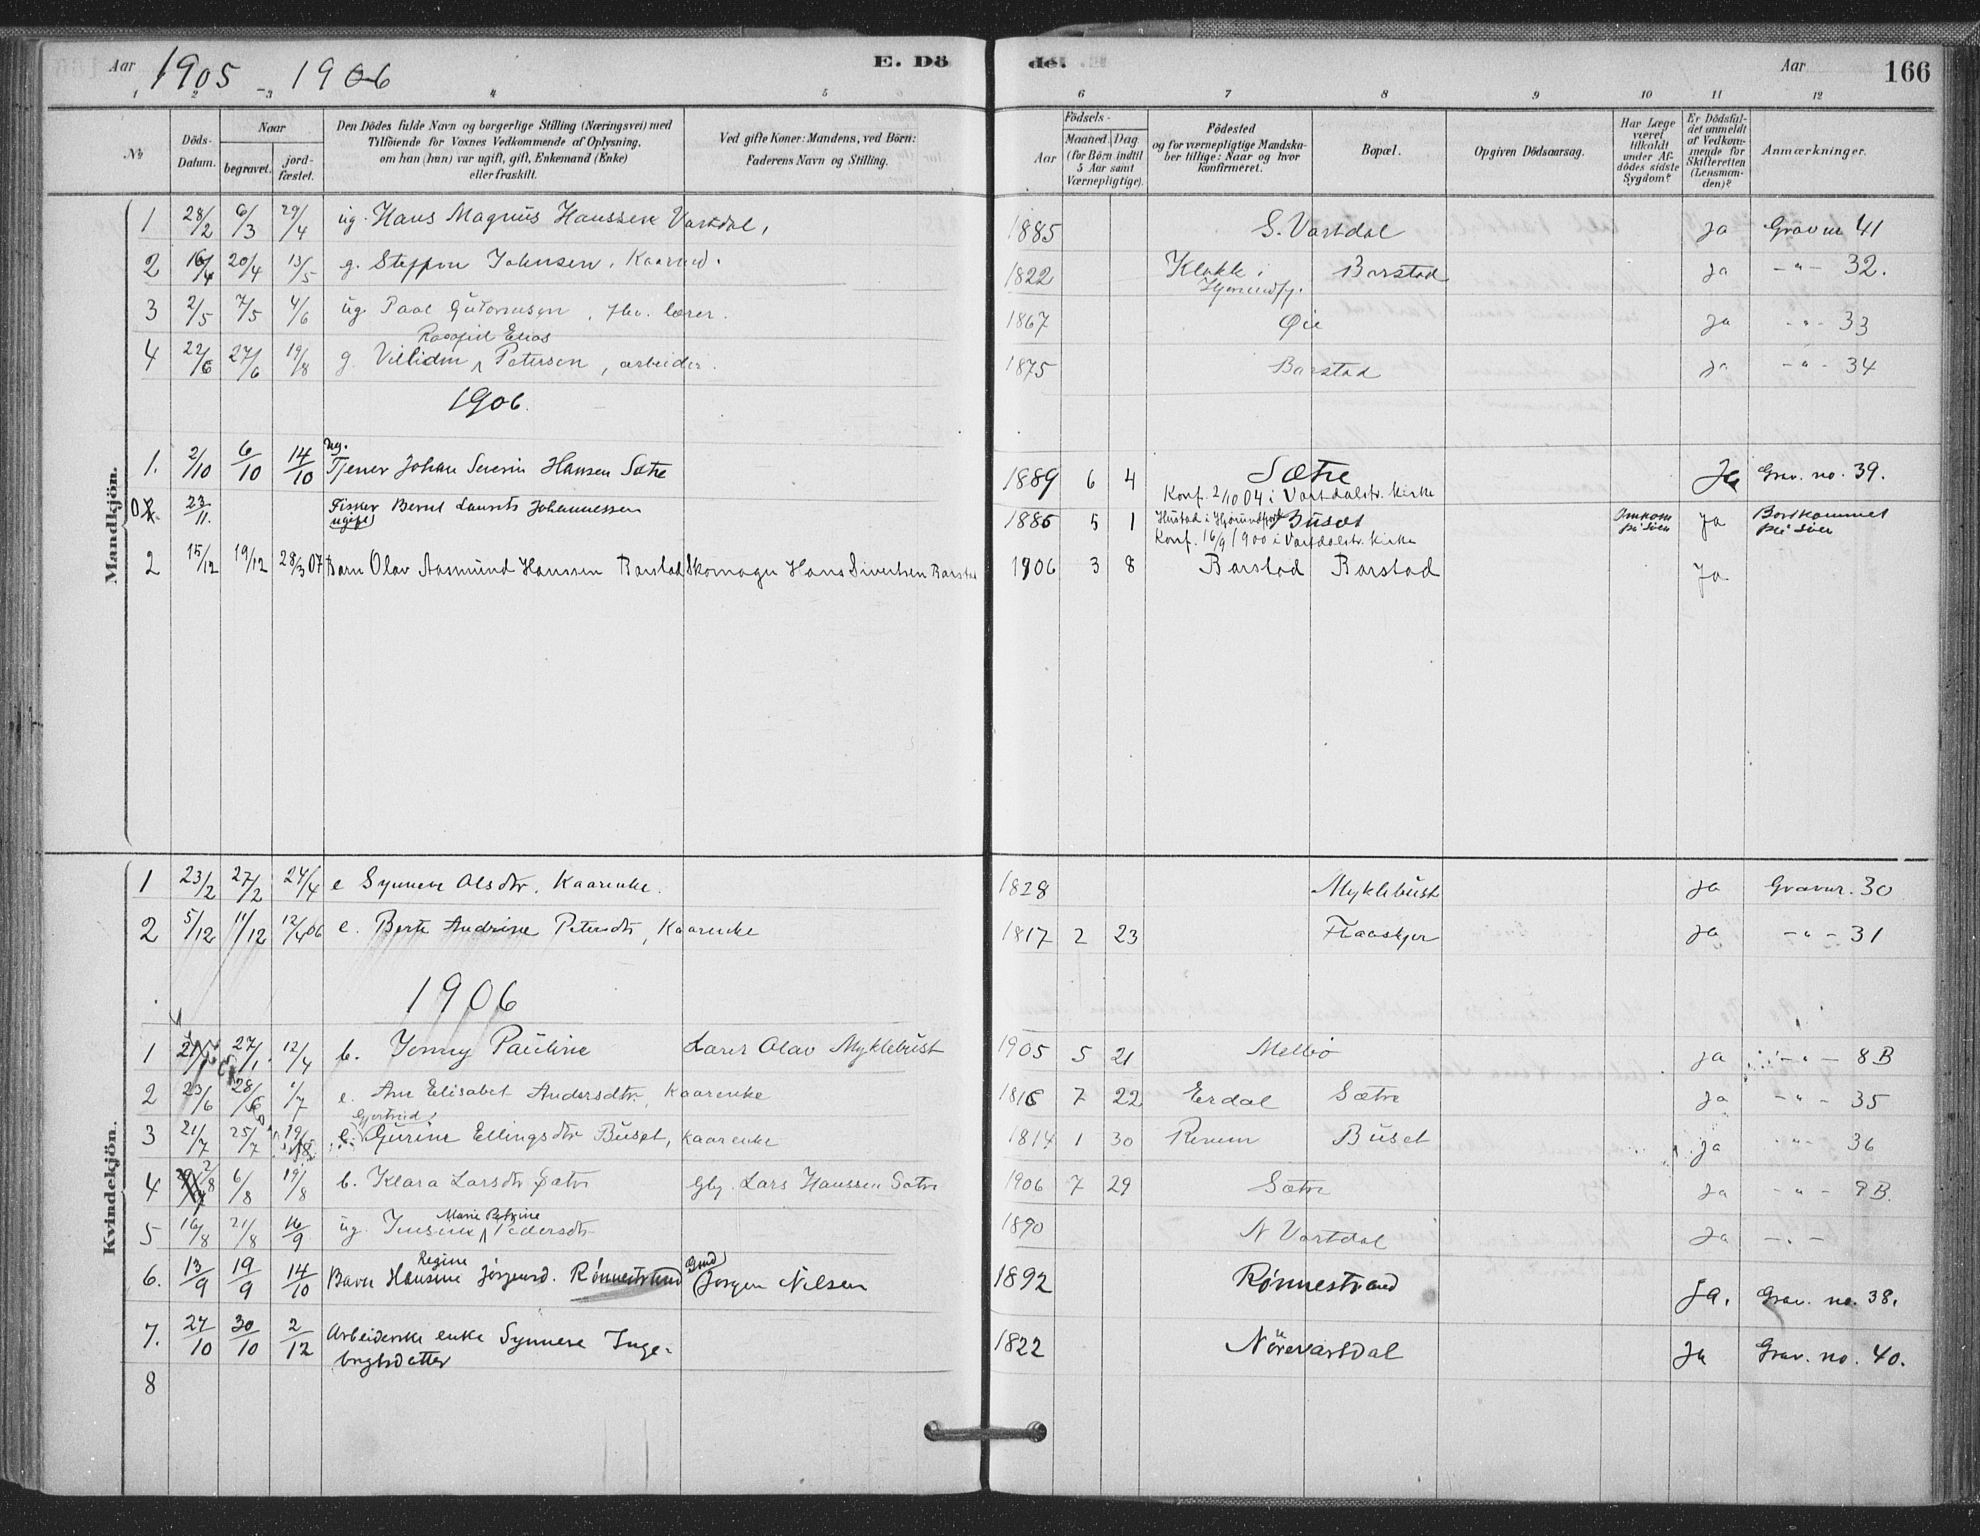 Aar 1905 - 1906 E. Dö de. Aar 166
1 2 3 4 5 6 7 8 9 10 11 12
No
Döds-Datum.
Naar
begravet. jord-fæstet.
Den Dödes fulde Navn og borgerlige Stilling (Næringsvei) med
Tilföiende for Voxnes Vedkommende af Oplysning,
om han (hun) var ugift, gift, Enkemand (Enke)
eller fraskilt.
Ved gifte Koner: Mandens, ved Börn:
Faderens Navn og Stilling.
Födsels-
Aar
Maaned. Dag.
(for Börn indtil
5 Aar samt
Værnepligtige).
Födested
og for værnepligtige Mandska-
ber tillige: Naar og hvor
konfirmeret.
Bopæl.
Opgiven Dödsaarsag.
Har Læge
været
tilkaldt
under Af-
dödes sidste
Sygdom?
Er Dödsfal-
det anmeldt
af Vedkom-
mende for
Skifteretten
(Lensman-
den)?
Anmærkninger.
Mandkjön.
1 28/2 6/3 29/4 ug. Hans Magnus Hanssen Vartdal, 1885 S. Vartdal Ja Grav nr 41
2 16/4 20/4 13/5 g. Steffen Johnsen, Kaarmd. 1822 Klokk i Hjørundfj. Barstad Ja -"- 32.
3 2/5 7/5 4/6 ug. Paal Guttormsen, fhv. lærer. 1867 Øie Ja -"- 33
Elias
4 22/6 27/6 19/8 g. Villidm Petersen, arbeider. 1875 Barstad Ja -"- 34
1906.
ug.
1. 2/10 6/10 14/10 Tjener Johan Severin Hansen Sætre 1889 6 4 Sætre Ja Grav. no. 39.
Konf. 2/10 04 i Vartdalstr. kirke
23/11. Fisker Bernt Laurits Johannessen 1885 5 1 Hustad i Hjørundfjord Buset Omkom paa Søen Ja Bortkommet paa Søen
ugift Konf. 16/9 1900 i Vartdalstr. kirke
2 15/12 19/12 28/3 07 Barn Olav Aasmund Hanssen Barstad Skomager Hans Sivertsen Barstad 1906 3 8 Barstad Barstad Ja
Kvindekjön.
1 23/2 27/2 24/4 e Synneve Olsdtr. Kaarenke. 1828 Myklebust Ja Gravnr. 30
2 5/12 11/12 12/4 06 e. Berte Andrine Petersdtr, Kaarenke 1817 2 23 Flaaskjer Ja -"- 31
1906
1 27/1. 12/4 b. Jenny Pauline Lærer Olav Myklebust 1905 5 21 Melbø Ja -"- 8 B
2 23/6 28/6 1/7 e. Ane Elisabet Andersdtr, Kaarenke 1816 7 22 Erdal Sætre Ja -"- 35
Gjertrud
3 21/7 25/7 19/8 e. Gurine Ellingsdtr Buset, kaarenke 1814 1 30 Buset Ja -"- 36
4 2/8 6/8 19/8 b. Klara Larsdtr Sætre Gbr. Lars Hanssen Sætre 1906 7 29 Sætre Ja -"- 9 B.
Marie Petrine
5 16/8 21/8 16/9 ug Jensine Pedersdtr 1890 N Vartdal Ja -"-
Regine
6. 13/9 19/9 14/10 Barn Hansine Jørgensd. Rønnestrand Gmd Jørgen Nilsen 1892 Rønnestrand Ja. Grav. no. 38.
7. 27/10 30/10 2/12 Arbeiderske enke Synneve Inge- 1822 Nørevartdal Ja Grav. no. 40.
brigtsdatter
8